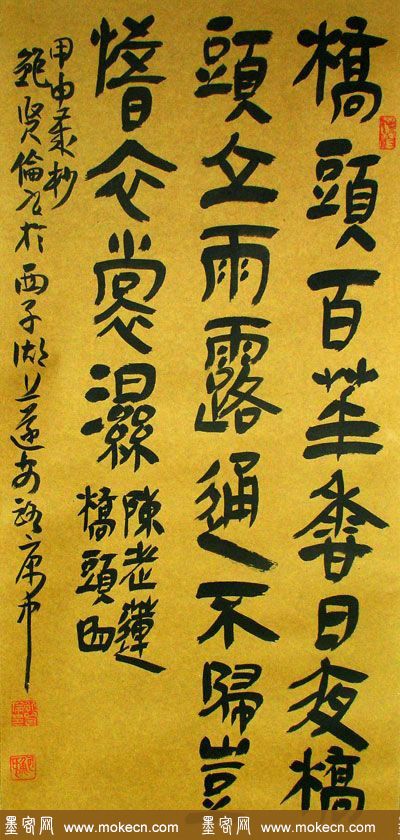 橋頭百華香日夜橋
頭立雨露通不歸豈
惜衣裳濕
陳老蓮
橋頭曲
甲申歲杪
鮑贤倫於西子湖上
墨客网 www.mokecn.com 墨客网 www.mokecn.com